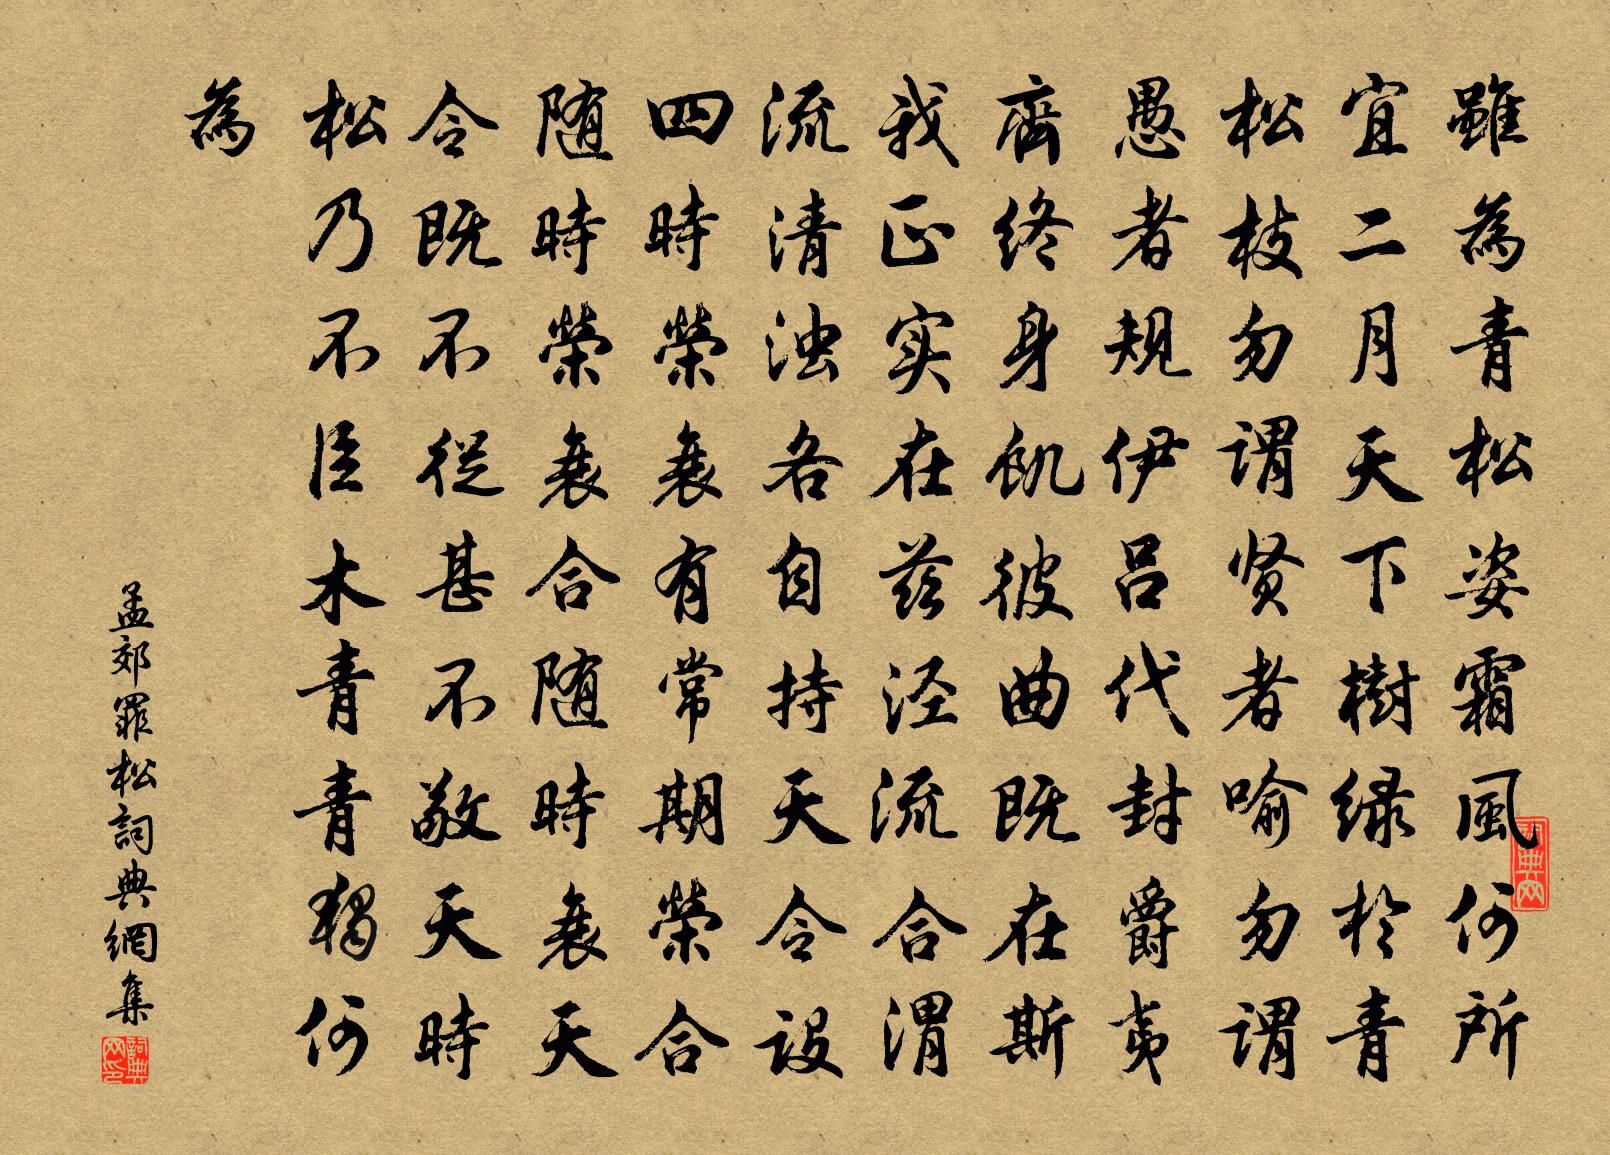 雖為青松姿霜風何所
宜二月天下樹绿於青
松枝勿谓贤者喻勿谓
愚者規伊吕代封爵夷
齊终身飢彼曲既在斯
我正实在兹泾流合渭
流清浊各自持天令设
四時榮衰有常期榮合
随時榮衰合随時衰天
令既不從甚不敬天時
松乃不臣木青青獨何
為
孟郊罪松詞典網集
詞典网
詞典网印